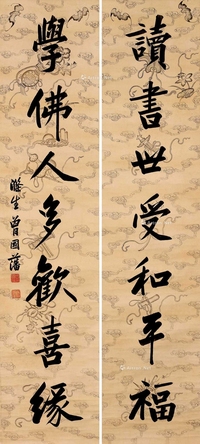 讀書世受和平福
學佛人多歡喜緣
滌生曾國藩